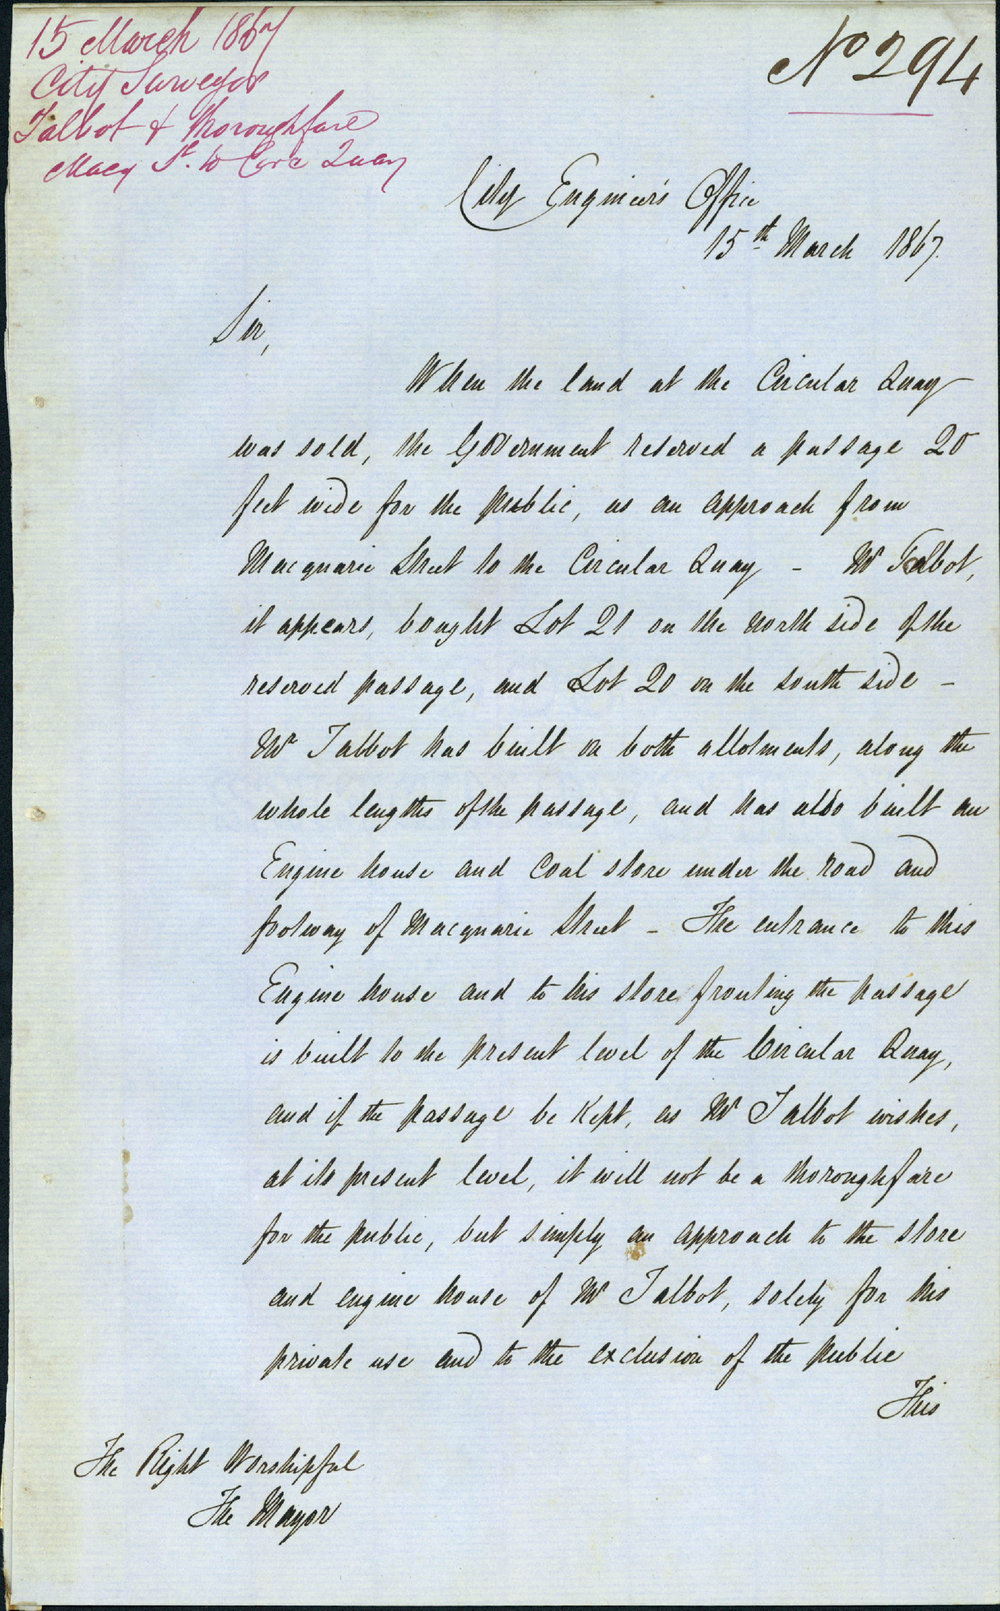 15 March 1867
City Surveyor
Talbot & thoroughfare
Macq St. to Circ Quay
No 294
City Engineer's Office
15th March 1867.
Sir,
When the land at the Circular Quay
was sold, the Government reserved a passage 20
feet wide for the public, as an approach from
Macquarie Street to the Circular Quay - Mr Talbot,
it appears, bought Lot 21 on the north side of the
reserved passage, and Lot 20 on the south side -
Mr Talbot has built on both allotments, along the
whole lengths of the passage, and has also built an
Engine house and Coal store under the road and
footway of Macquarie Street - The entrance to this
Engine house and to his store fronting the passage
is built to the present level of the Circular Quay,
and if the passage be kept, as Mr Talbot wishes,
at its present level, it will not be a thoroughfare
for the public, but simply an approach to the store
and engine house of Mr Talbot, solely for his
private use and to the exclusion of the public
This
The Right Worshipful
The Mayor